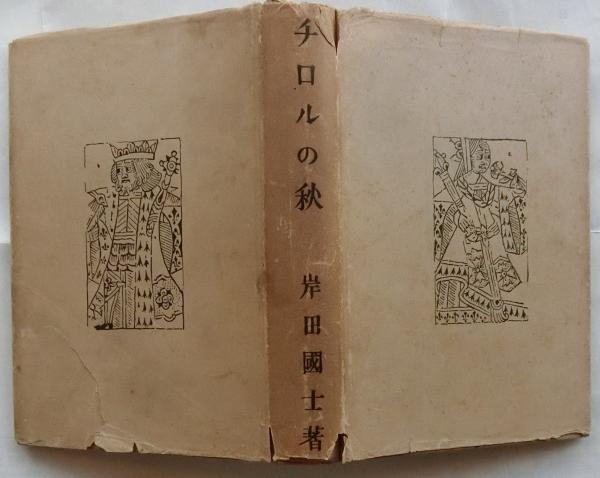 チロルの秋
岸田國士著